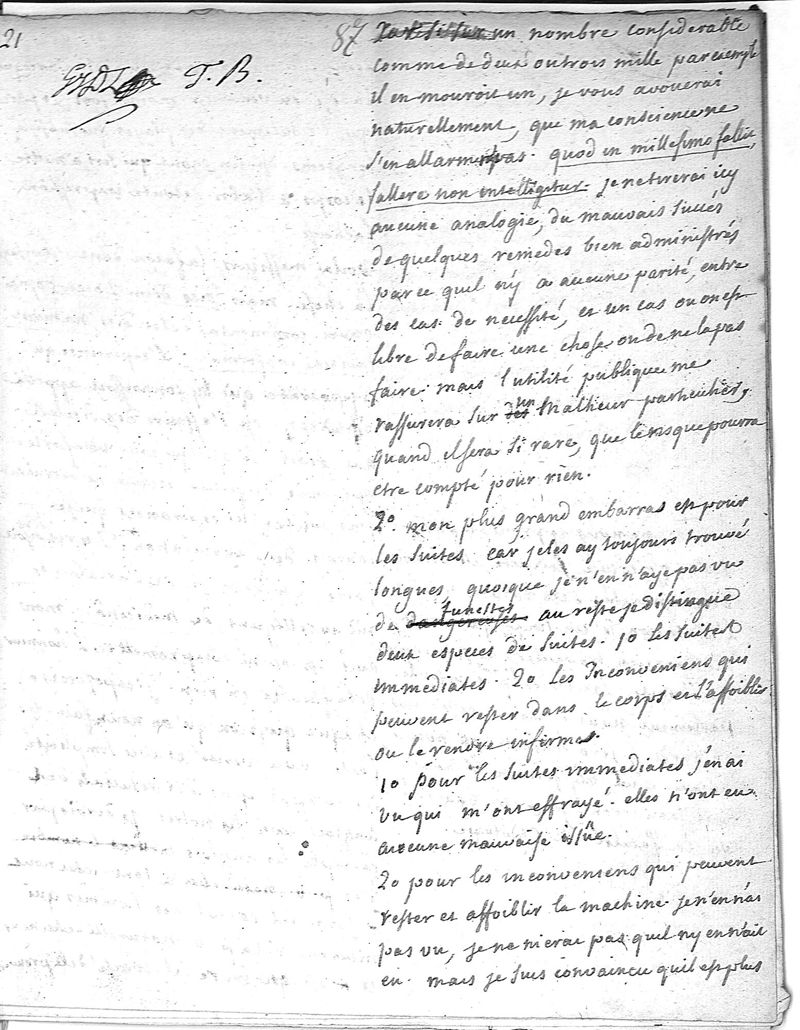 21
87
un nombre considerable
comme de deux ou trois mille par exemple
il en mouroit un, je vous avouerai
naturellement, que ma conscience ne
s'en allarme pas. quod in millesimo fallit
fallere non intelligitur. je ne tirerai icy
aucune analogie, du mauvais succés
de quelques remedes bien administrés
parce quil n'y a aucune parité, entre
des cas de necessité, et un cas ou on est
libre de faire une chose ou de ne la pas
faire. mais l'utilité publique me
rassurera sur des un malheur particulier,
quand il sera si rare, que le risque pourra
etre compté pour rien.
2º. mon plus grand embarras est pour
les suites. car je les ay toujours trouvé
longues, quoique je n'en n'aye pas vu
de dangereuses funestes au reste je distingue
deux especes de suites. 1o les suites
immediates. 2o les Inconveniens qui
peuvent rester dans le corps et l'affoiblir
ou le rendre infirme.
1o pour les suites immediates j'en ai
vu qui m'ont effrayé. elles n'ont eu
aucune mauvaise issüe.
2o pour les inconveniens qui peuvent
rester et affoiblir la machine. je n'en n'ai
pas vu, je ne nierai pas quil n'y en n'ait
eu. mais je suis convaincu quil est plus
T. B.